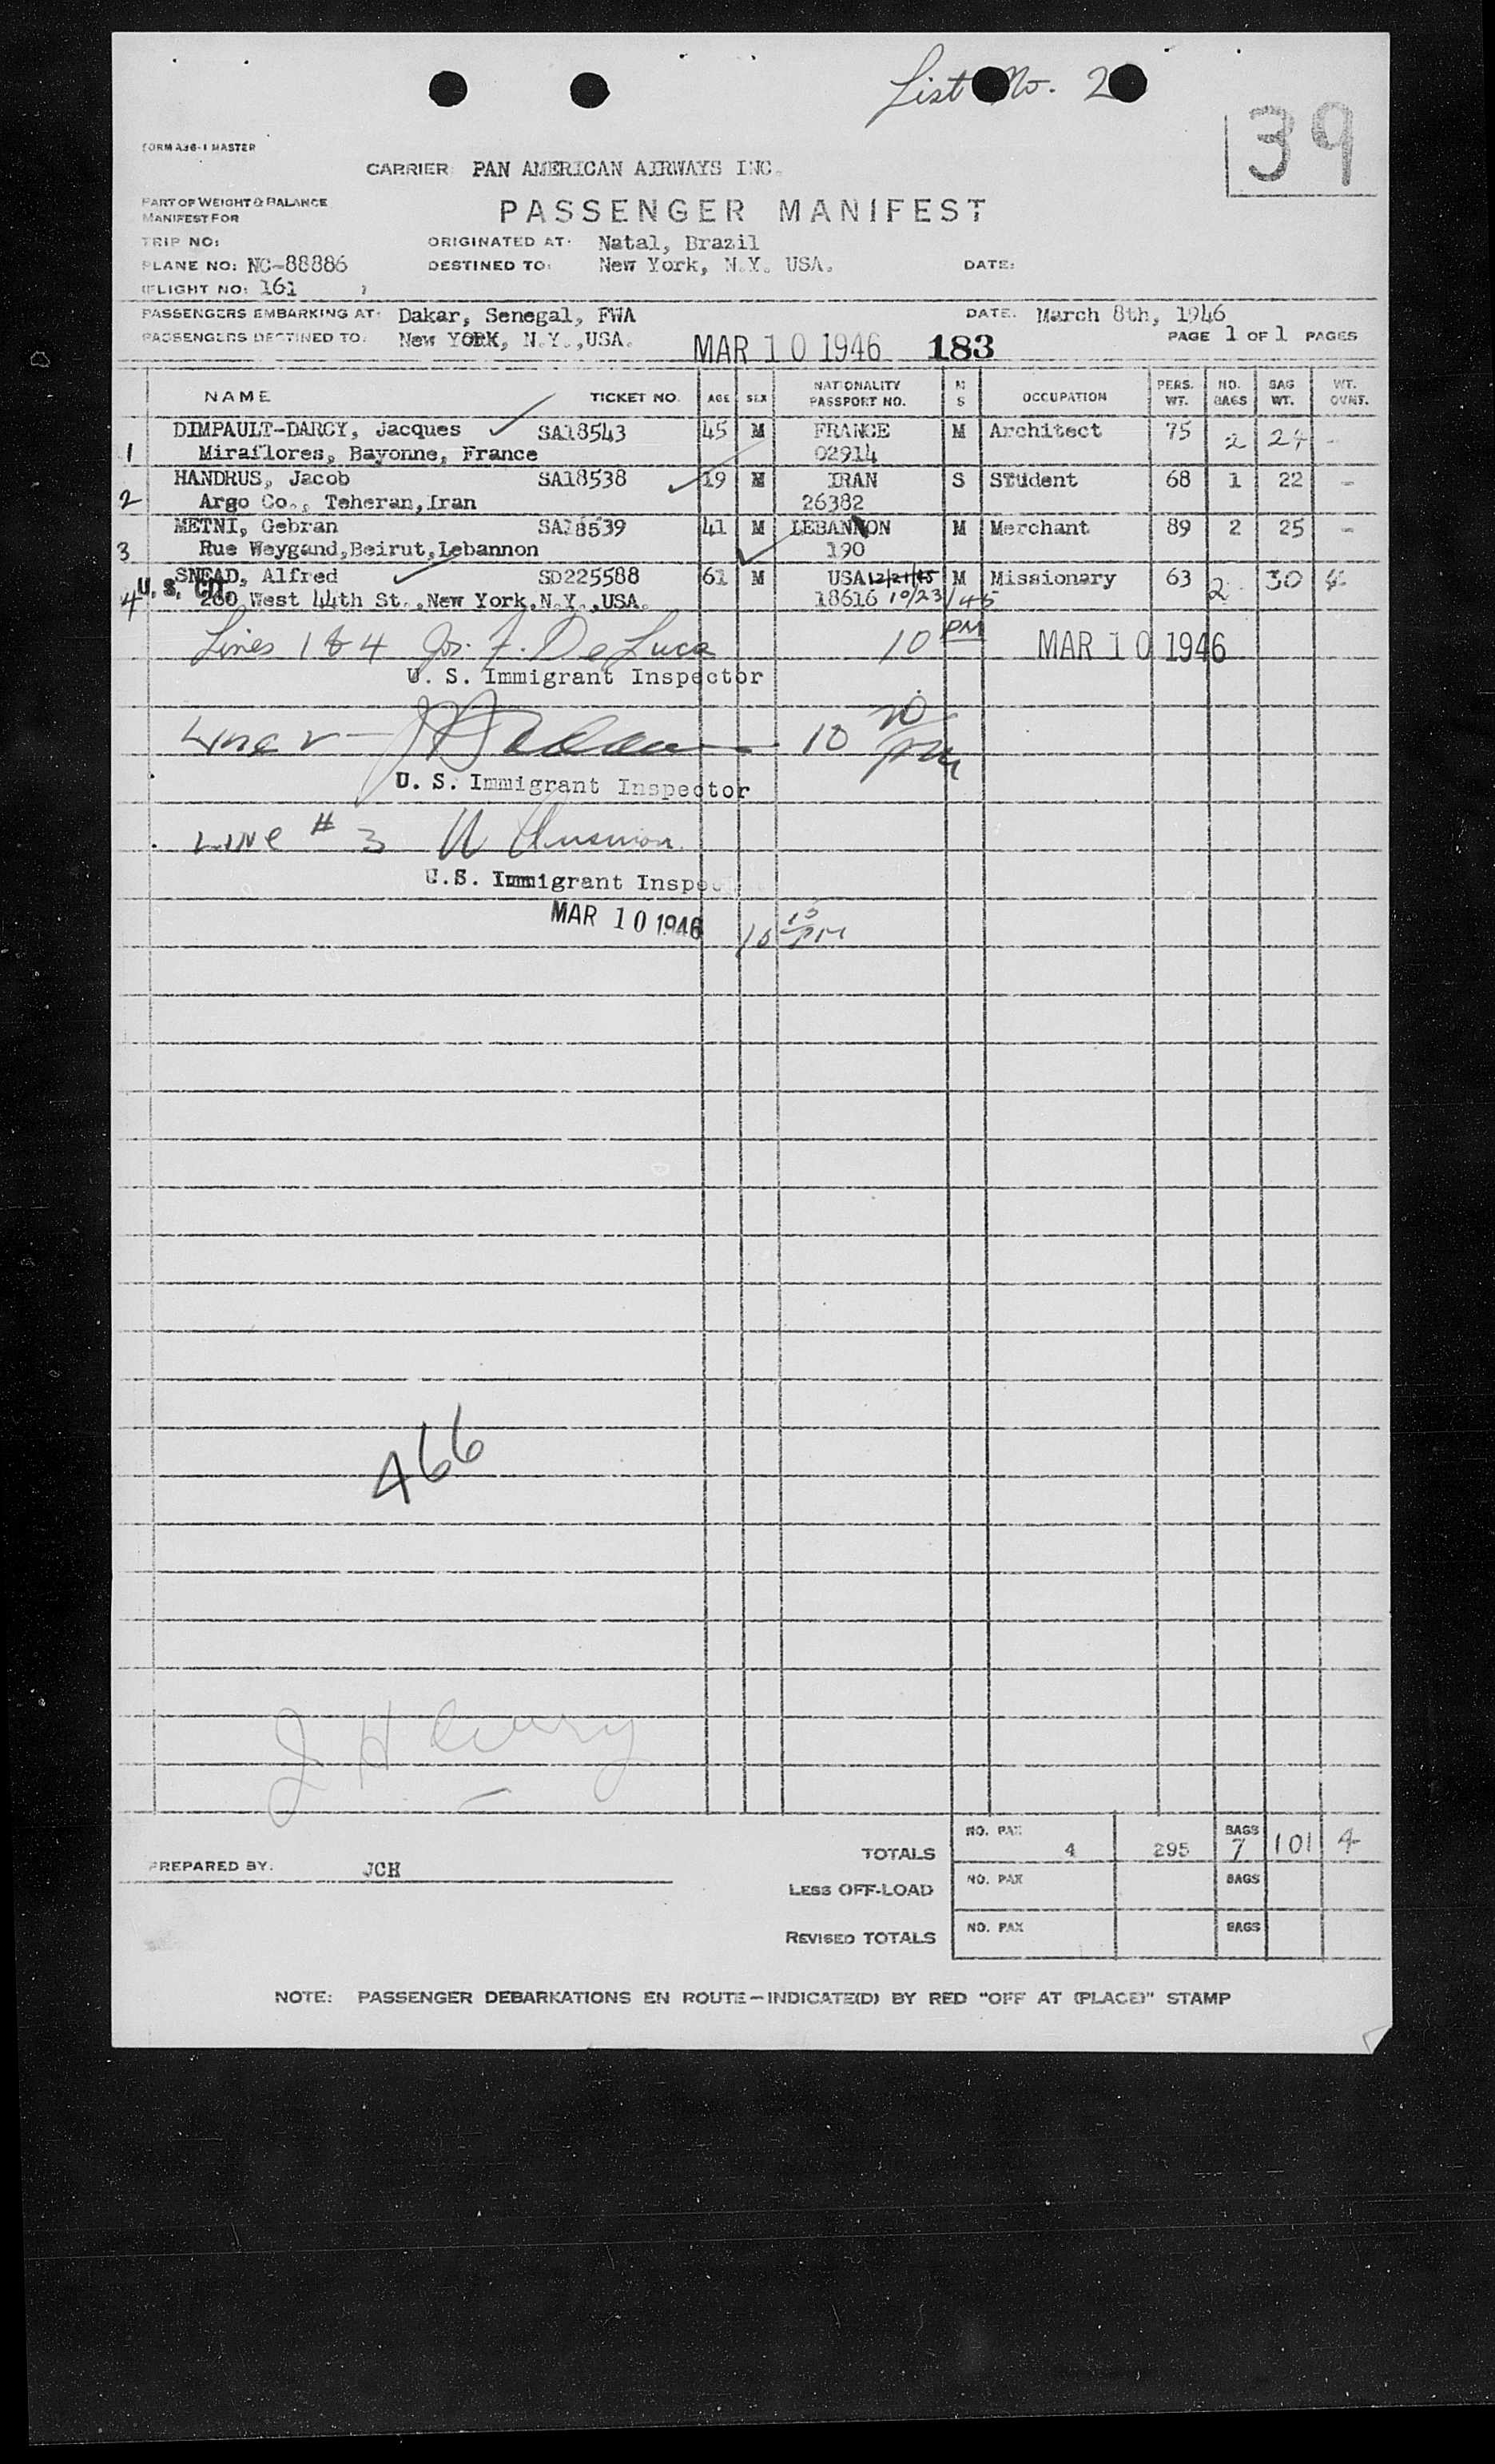 List No. 2
39
FORM A36-1 MASTER
CARRIER: PAN AMERICAN AIRWAYS INC.
PART OF WEIGHT & BALANCE
MANIFEST FOR
PASSENGER MANIFEST
TRIP NO:
ORIGINATED AT: Natal, Brazil
PLANE NO: NC-88886
DESTINED TO: New York, N.Y. USA.
DATE:
(FLIGHT NO: 161 )
PASSENGERS EMBARKING AT: Dakar, Senegal, FWA
DATE: March 8th, 1946
PASSENGERS DESTINED TO: New YORK, N.Y.,USA.
MAR 10 1946 183
PAGE 1 OF 1 PAGES
NAME TICKET NO. AGE SEX NATIONALITY PASSPORT NO. M S OCCUPATION PERS. WT. NO. BAGS BAG WT. WT. OVNT.
DIMPAULT-DARCY, Jacques SA18543 45 M FRANCE M Architect 75 2 24 -
1 Miraflores, Bayonne, France 02914
HANDRUS, Jacob SA18538 19 M IRAN S STudent 68 1 22 -
2 Argo Co., Teheran,Iran 26382
METNI, Gebran SA18539 41 M LEBANNON M Merchant 89 2 25 -
3 Rue Weygand,Beirut,Lebannon 190
SNEAD, Alfred SD225588 61 M USA 12/21/45 M Missionary 63 2 30 4
U. S. CIT.
4 260 West 44th St.,New York,N.Y.,USA. 18616 10/23/45
Lines 1 & 4 Jos. F. DeLuca 10 PM MAR 10 1946
U. S. Immigrant Inspector
Line 2 - 10 20 PM
U. S. Immigrant Inspector
LINE # 3
U.S. Immigrant Inspec
MAR 10 1946 10 15 PM
466
J H
TOTALS NO. PAX 4 295 BAGS 7 101 4
PREPARED BY: JCH
LESS OFF-LOAD NO. PAX BAGS
REVISED TOTALS NO. PAX BAGS
NOTE: PASSENGER DEBARKATIONS EN ROUTE—INDICATE(D) BY RED "OFF AT (PLACE)" STAMP